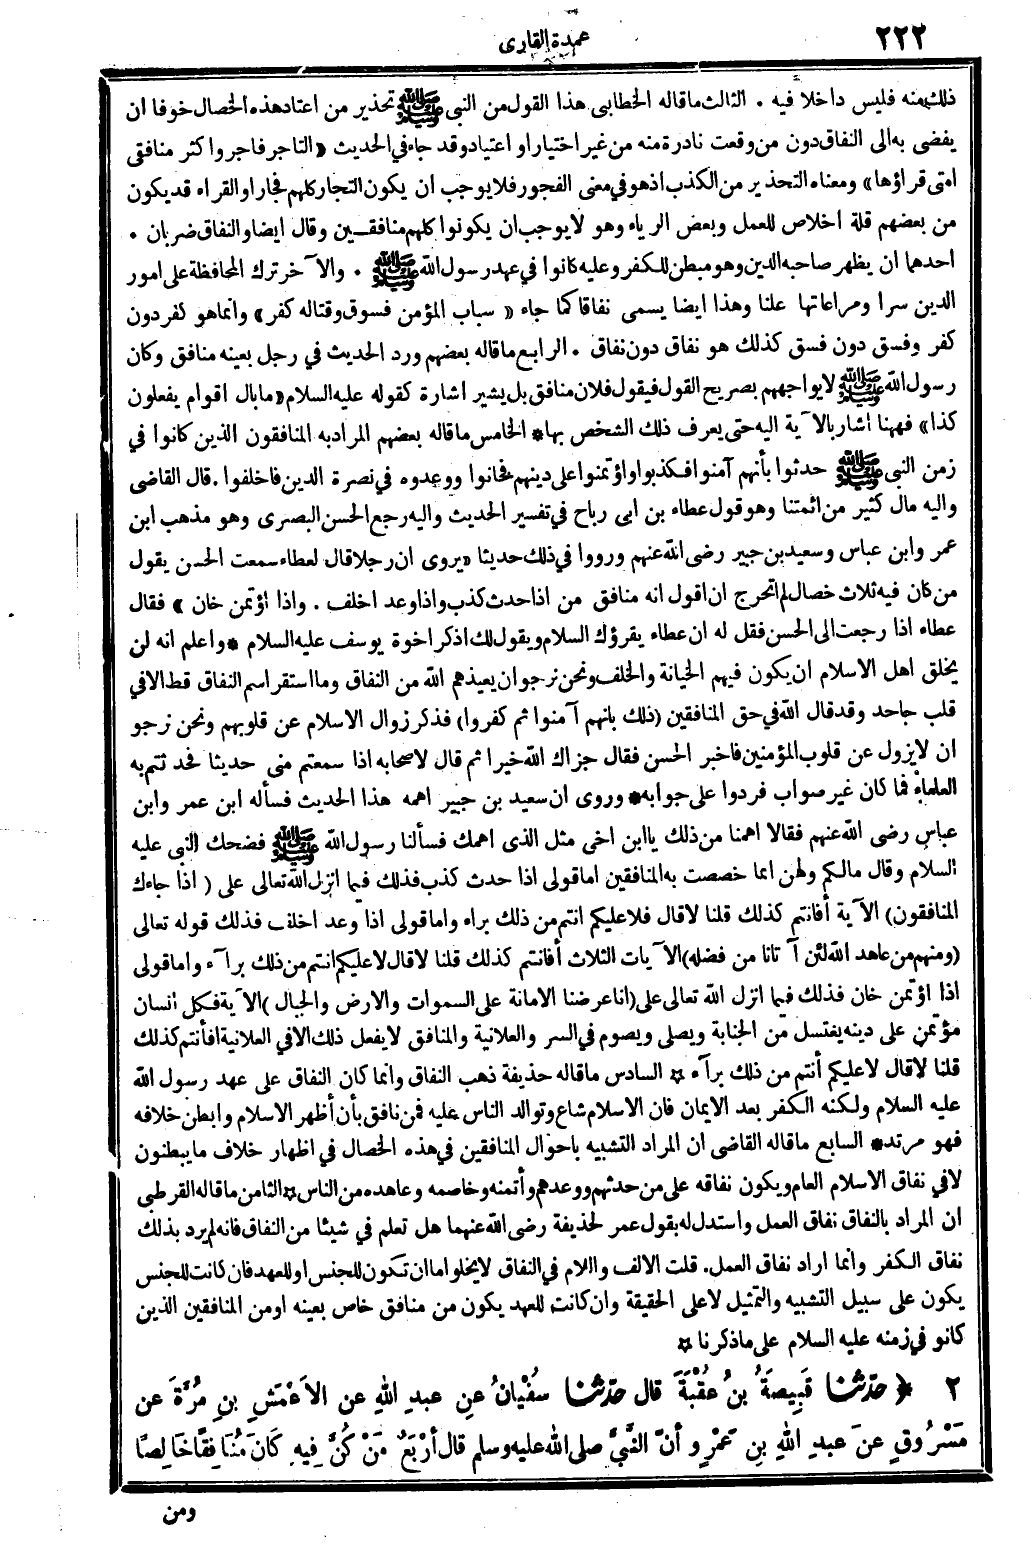 ٢٢٢
عمدة القارى
ذلك منه فليس داخلا فيه . الثالث ما قاله الخطابى هذا القول من النبى ﷺ تحذير من اعتاد هذه الخصال خوفا ان
يفضى به الى النفاق دون من وقعت نادرة منه من غير اختيار او اعتياد وقد جاء فى الحديث «التاجر فاجر واكثر منافقى
امتى قراؤها» ومعناه التحذير من الكذب اذ هو فى معنى الفجور فلا يوجب ان يكون التجار كلهم فجار او القراء قد يكون
من بعضهم قلة اخلاص للعمل وبعض الرياء وهو لا يوجب ان يكونوا كلهم منافقين وقال ايضا والنفاق ضربان .
احدهما ان يظهر صاحبه الدين وهو مبطن للكفر وعليه كانوا فى عهد رسول الله ﷺ . والآخر ترك المحافظة على امور
الدين سرا ومراعاتها علنا وهذا ايضا يسمى نفاقا كما جاء « سباب المؤمن فسوق وقتاله كفر» وانما هو كفر دون
كفر وفسق دون فسق كذلك هو نفاق دون نفاق . الرابع ما قاله بعضهم ورد الحديث في رجل بعينه منافق وكان
رسول الله ﷺ لا يواجههم بصريح القول فيقول فلان منافق بل يشير اشارة كقوله عليه السلام «ما بال اقوام يفعلون
كذا» فههنا اشار بالآية اليه حتى يعرف ذلك الشخص بها * الخامس ما قاله بعضهم المراد به المنافقون الذين كانوا في
زمن النبى ﷺ حدثوا بأنهم آمنوا فكذبوا واؤتمنوا على دينهم فخانوا ووعدوه فى نصرة الدين فاخلفوا . قال القاضى
واليه مال كثير من ائمتنا وهو قول عطاء بن ابى رباح في تفسير الحديث واليه رجع الحسن البصرى وهو مذهب ابن
عمر وابن عباس وسعيد بن جبير رضى الله عنهم ورووا في ذلك حديثا «يروى ان رجلا قال لعطاء سمعت الحسن يقول
من كان فيه ثلاث خصال لم اتحرج ان اقول انه منافق من اذا حدث كذب واذا وعد اخلف . واذا اؤتمن خان » فقال
عطاء اذا رجعت الى الحسن فقل له ان عطاء يقرؤك السلام ويقول لك اذكر اخوة يوسف عليه السلام * واعلم انه لن
يخلق اهل الاسلام ان يكون فيهم الخيانة والخلف ونحن نرجو ان يعيذهم الله من النفاق وما استقر اسم النفاق قط الا في
قلب جاحد وقد قال الله في حق المنافقين (ذلك بانهم آمنوا ثم كفروا) فذكر زوال الاسلام عن قلوبهم ونحن نرجو
ان لا يزول عن قلوب المؤمنين فاخبر الحسن فقال جزاك الله خيرا ثم قال لاصحابه اذا سمعتم منى حديثا فحدثتم به
العلماء فما كان غير صواب فردوا على جوابه * وروى ان سعيد بن جبير اهمه هذا الحديث فسأله ابن عمر وابن
عباس رضى الله عنهم فقالا اهمنا من ذلك يا ابن اخى مثل الذى اهمك فسألنا رسول الله ﷺ فضحك النبى عليه
السلام وقال مالكم ولهن انما خصصت به المنافقين اما قولى اذا حدث كذب فذلك فيما انزل الله تعالى على ( اذا جاءك
المنافقون) الآية أفانتم كذلك قلنا لا قال فلا عليكم انتم من ذلك براء واما قولى اذا وعد اخلف فذلك قوله تعالى
(ومنهم من عاهد الله لئن آتانا من فضله) الآيات الثلاث أفانتم كذلك قلنا لا قال لا عليكم انتم من ذلك برآء واما قولى
اذا اؤتمن خان فذلك فيما انزل الله تعالى على (انا عرضنا الامانة على السموات والارض والجبال )الآية فكل انسان
مؤتمن على دينه يغتسل من الجنابة ويصلى ويصوم في السر والعلانية والمنافق لا يفعل ذلك الا في العلانية افأنتم كذلك
قلنا لا قال لا عليكم أنتم من ذلك برآء * السادس ما قاله حذيفة ذهب النفاق وانما كان النفاق على عهد رسول الله
عليه السلام ولكنه الكفر بعد الايمان فان الاسلام شاع وتوالد الناس عليه فمن نافق بأن أظهر الاسلام وابطن خلافه
فهو مرتد * السابع ما قاله القاضى ان المراد التشبيه باحوال المنافقين في هذه الخصال في اظهار خلاف ما يبطنون
لا في نفاق الاسلام العام ويكون نفاقه على من حدثهم ووعدهم وأتمنه وخاصمه وعاهده من الناس * الثامن ما قاله القرطبى
ان المراد بالنفاق نفاق العمل واستدل له بقول عمر لحذيفة رضى الله عنهما هل تعلم في شيئا من النفاق فانه لم يرد بذلك
نفاق الكفر وانما اراد نفاق العمل. قلت الالف واللام في النفاق لا يخلو اما ان تكون للجنس او للعهد فان كانت للجنس
يكون على سبيل التشبيه والتمثيل لا على الحقيقة وان كانت للعهد يكون من منافق خاص بعينه او من المنافقين الذين
كانو في زمنه عليه السلام على ما ذكرنا *
٢ ﴿ حدّثنا قَبِيصَةُ بنُ عُقْبَةَ قال حدّثنا سُفْيانُ عنِ عبدِ اللهِ عن الاَعْمَشِ بنِ مُرَّةَ عن
مَسْرُوقٍ عنَ عبدِ اللهِ بنِ عَمْرٍو أنّ النَّبيَّ صلى الله عليه وسلم قال أرْبَعٌ مَنْ كُنَّ فيهِ كانَ مُنَافِقًا خَالِصًا
ومن